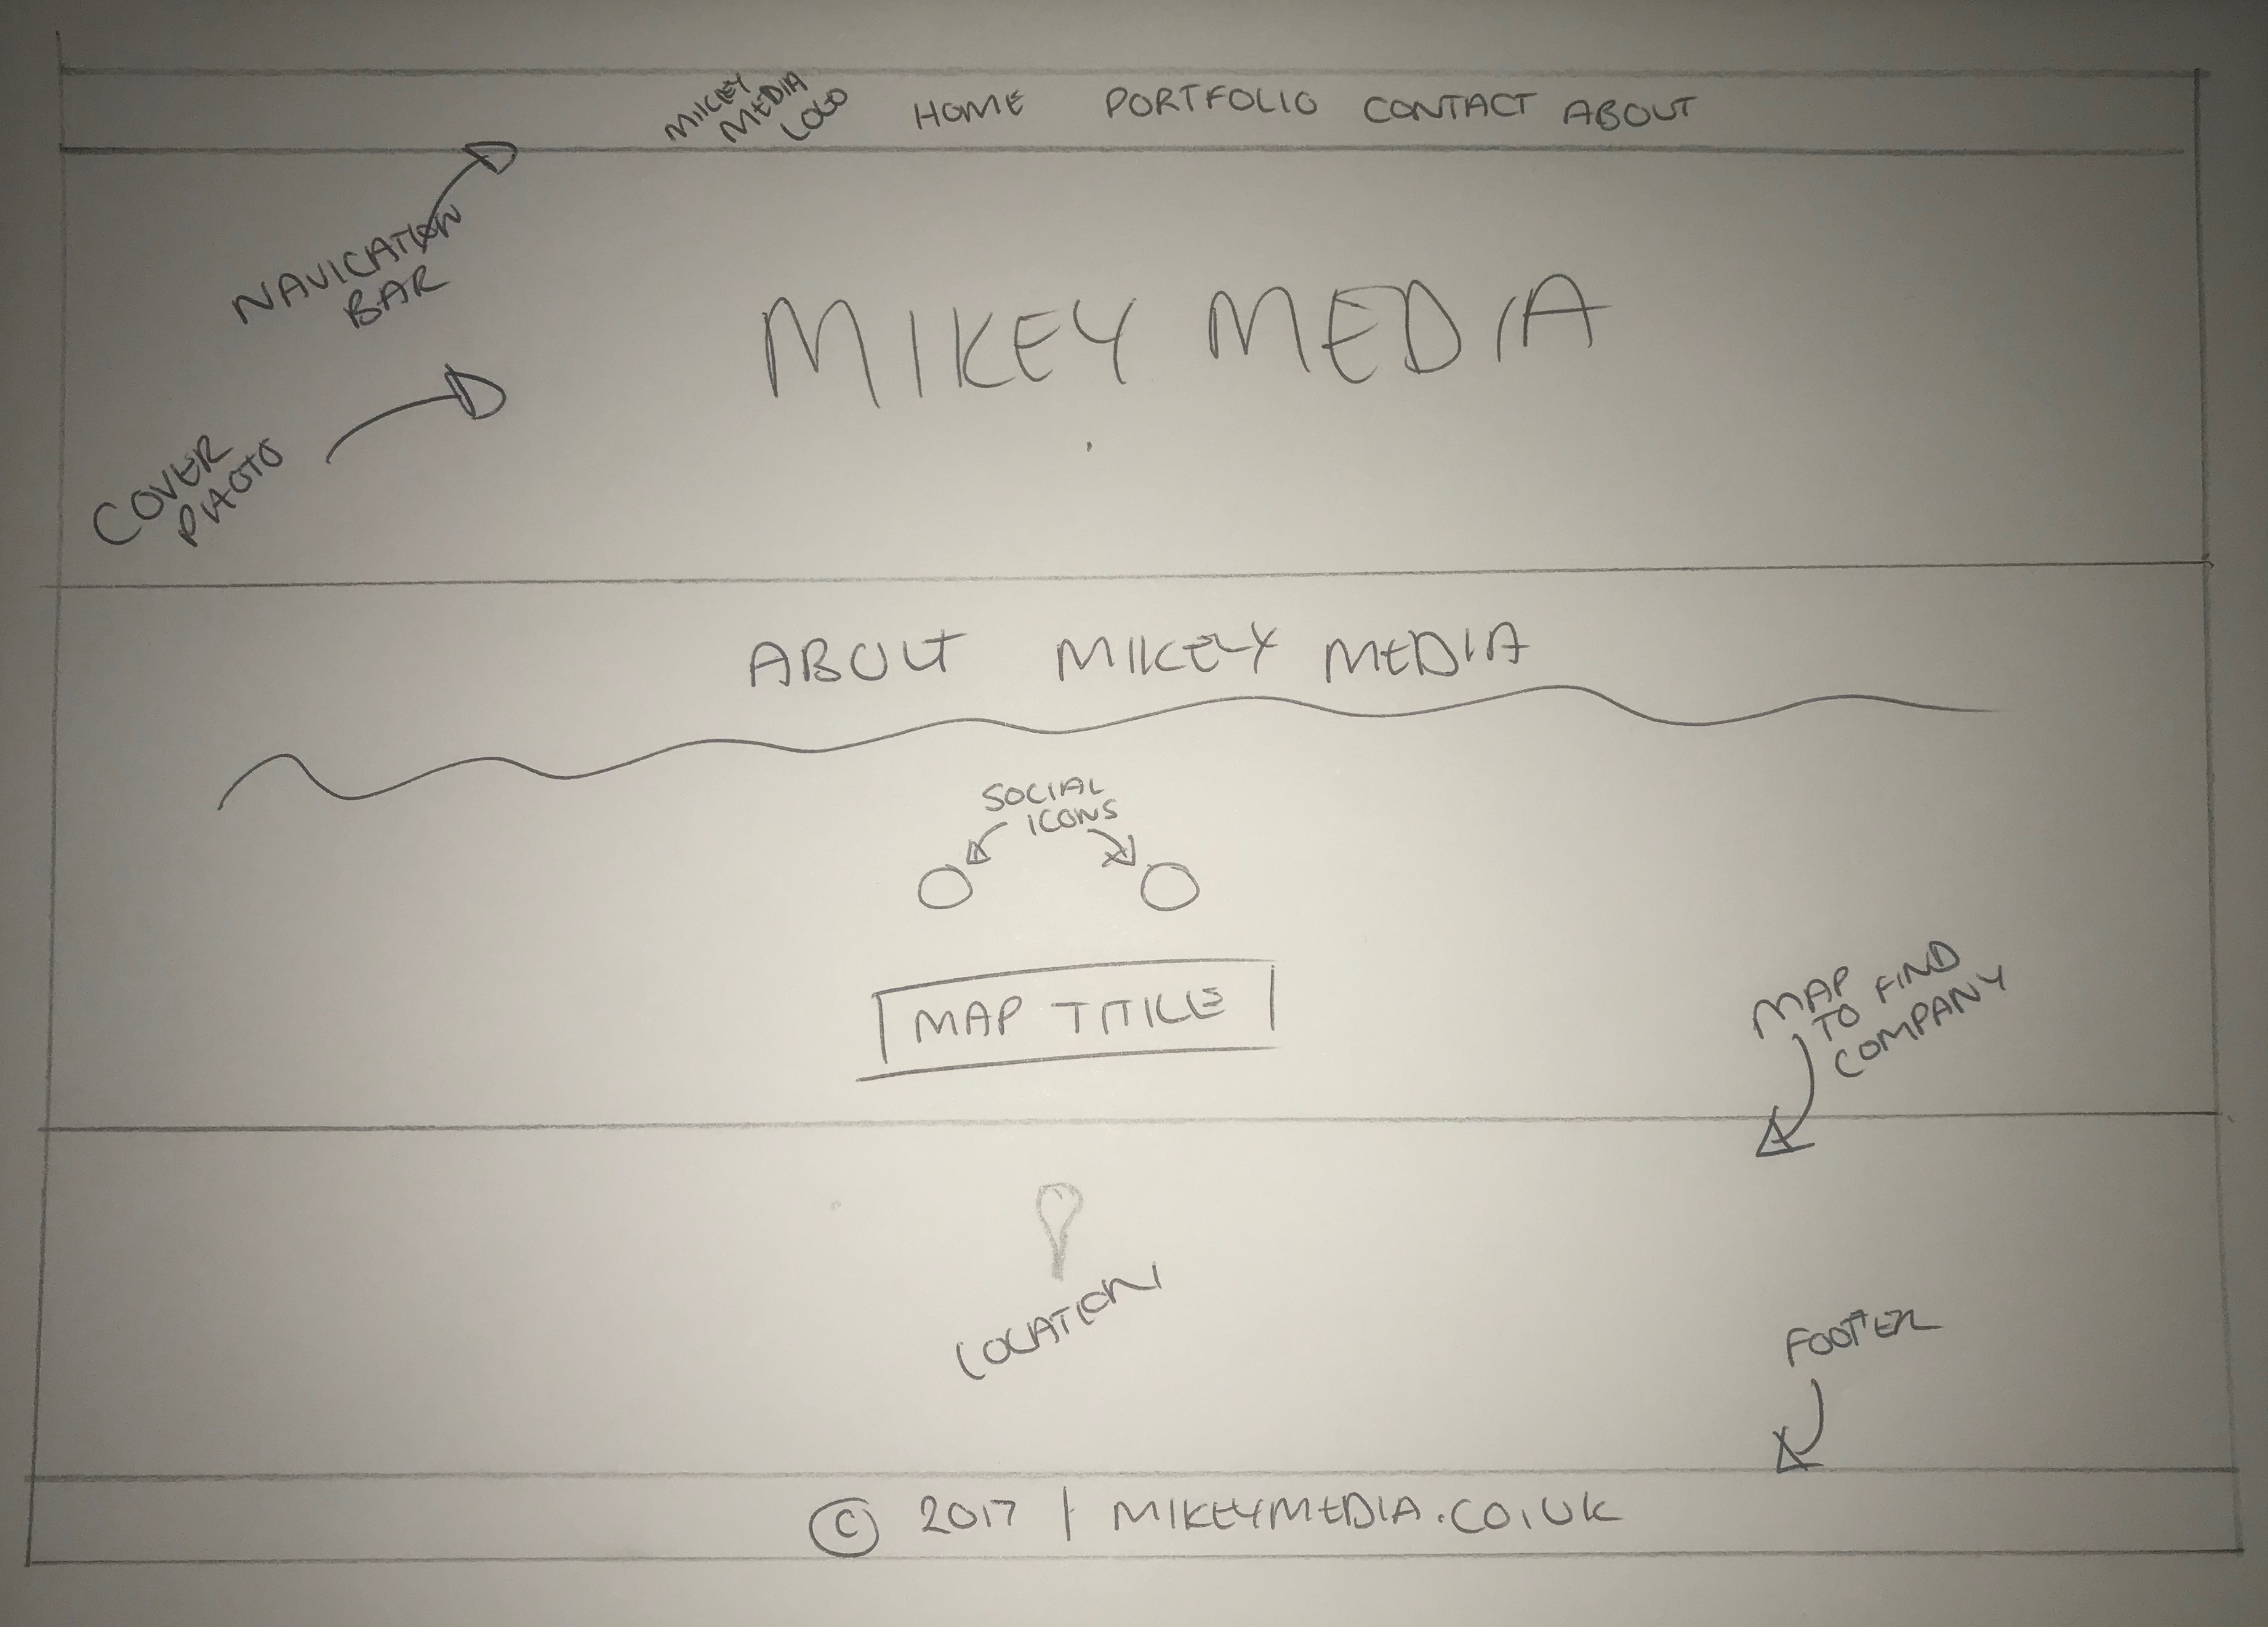 MIKEY
MEDIA
LOGO
HOME PORTFOLIO CONTACT ABOUT
NAVIGATION
BAR
MIKEY MEDIA
COVER
PHOTO
ABOUT MIKEY MEDIA
SOCIAL
ICONS
MAP TITLE
MAP
TO FIND
COMPANY
LOCATION
FOOTER
© 2017 | MIKEYMEDIA.CO.UK